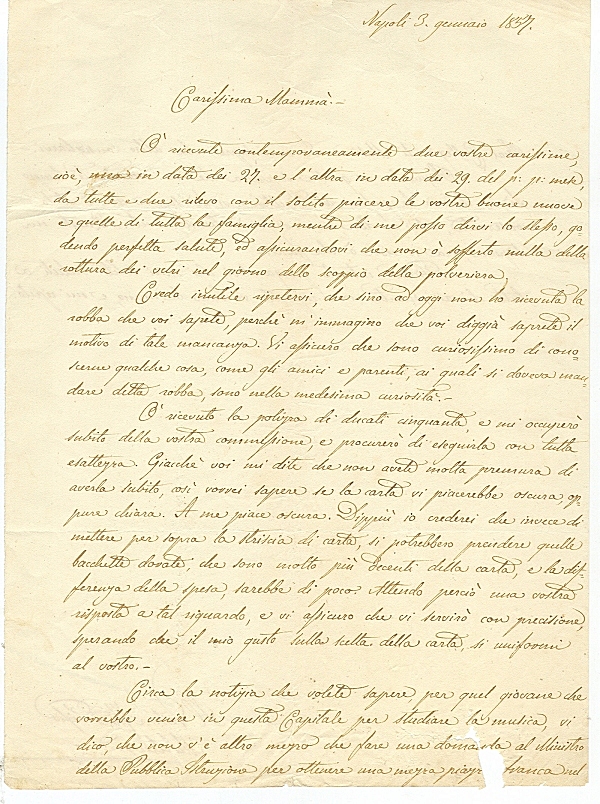 Napoli 3. gennaio 1857.
Carissima Mammà.-
Ò ricevute contemporaneamente due vostre carissime,
cioè, una in data dei 27. e l'altra in data dei 29. del p: p: mese,
da tutte e due rilevo con il solito piacere le vostre buone nuove
e quelle di tutta la famiglia, mentre di me posso dirvi lo stesso, go-
dendo perfetta salute, ed assicurandovi che non ò sofferto nulla della
rottura dei vetri nel giorno dello scoppio della polveriera.
Credo inutile ripetervi, che sino ad oggi non ho ricevuta la
robba che voi sapete, perchè m'immagino che voi diggià saprete il
motivo di tale mancanza. Vi assicuro che sono curiosissimo di cono-
scerne qualche cosa, come gli amici e parenti, ai quali si doveva man-
dare detta robba, sono nella medesima curiosità.-
Ò ricevuto la polizza di ducati cinquanta, e mi occuperò
subito della vostra commissione, e procurerò di eseguirla con tutta
esattezza. Giacchè voi mi dite che non avete molta premura di
averla subito, così vorrei sapere se la carta vi piacerebbe oscura, op-
pure chiara. A me piace oscura. Dippiù io crederei che invece di
mettere per sopra la striscia di carta, si potrebbero prendere quelle
bacchette dorate, che sono molto più decenti della carta, e la dif-
ferenza della spesa sarebbe di poco. Attendo perciò una vostra
risposta a tal riguardo, e vi assicuro che vi servirò con precisione,
sperando che il mio gusto sulla scelta della carta, si uniformi
al vostro.-
Circa la notizia che volete sapere, per quel giovane che
vorrebbe venire in questa Capitale per studiare la musica vi
dico, che non v'è altro mezzo che fare una domanda al Ministro
della Pubblica Istruzione per ottenere una mezza piazza franca nel